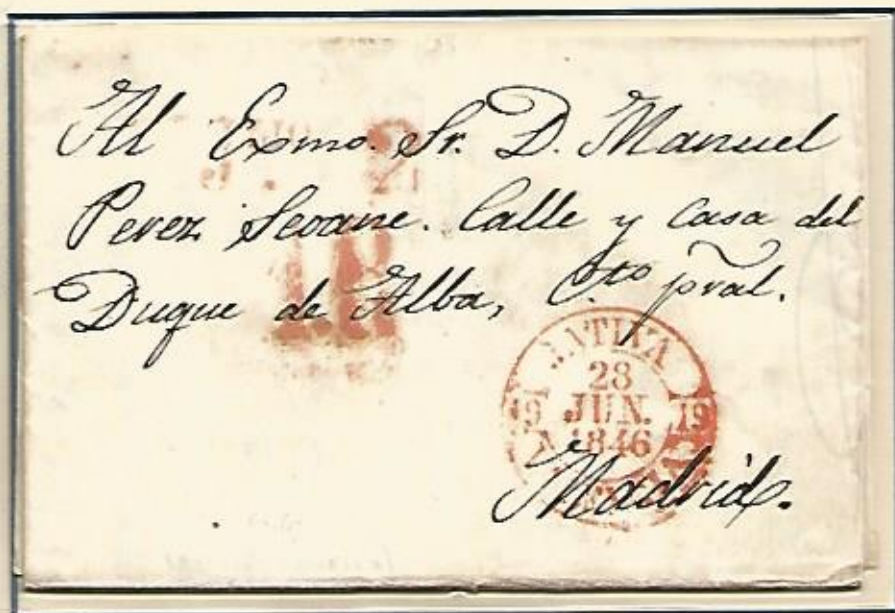 Al Exmo. Sr. D. Manuel
Perez Seoane. Calle y Casa del
Duque de Alba, Cto pral.
28
JUN.
1846
19 19
Madrid.